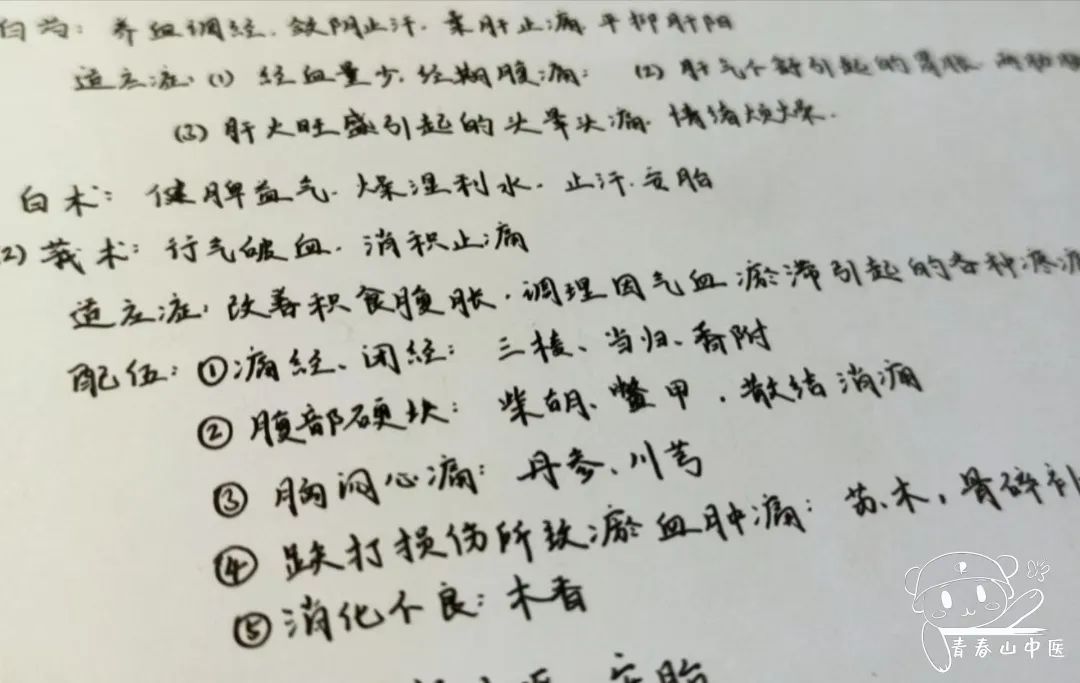 白芍：养血调经、敛阴止汗、柔肝止痛、平抑肝阳
适应症：(1) 经血量少、经期腹痛； (2) 肝气不舒引起的胃胀、两胁
(3) 肝火旺盛引起的头晕头痛、情绪烦燥.
白术：健脾益气、燥湿利水、止汗、安胎
(2) 莪术：行气破血、消积止痛
适应症：改善积食腹胀，调理因气血瘀滞引起的各种疼
配伍：①痛经、闭经：三棱、当归、香附
②腹部硬块：柴胡、鳖甲，散结消痛
③胸闷心痛：丹参、川芎
④跌打损伤所致瘀血肿痛：苏木，骨碎补
⑤消化不良：木香
安胎
青春山中医